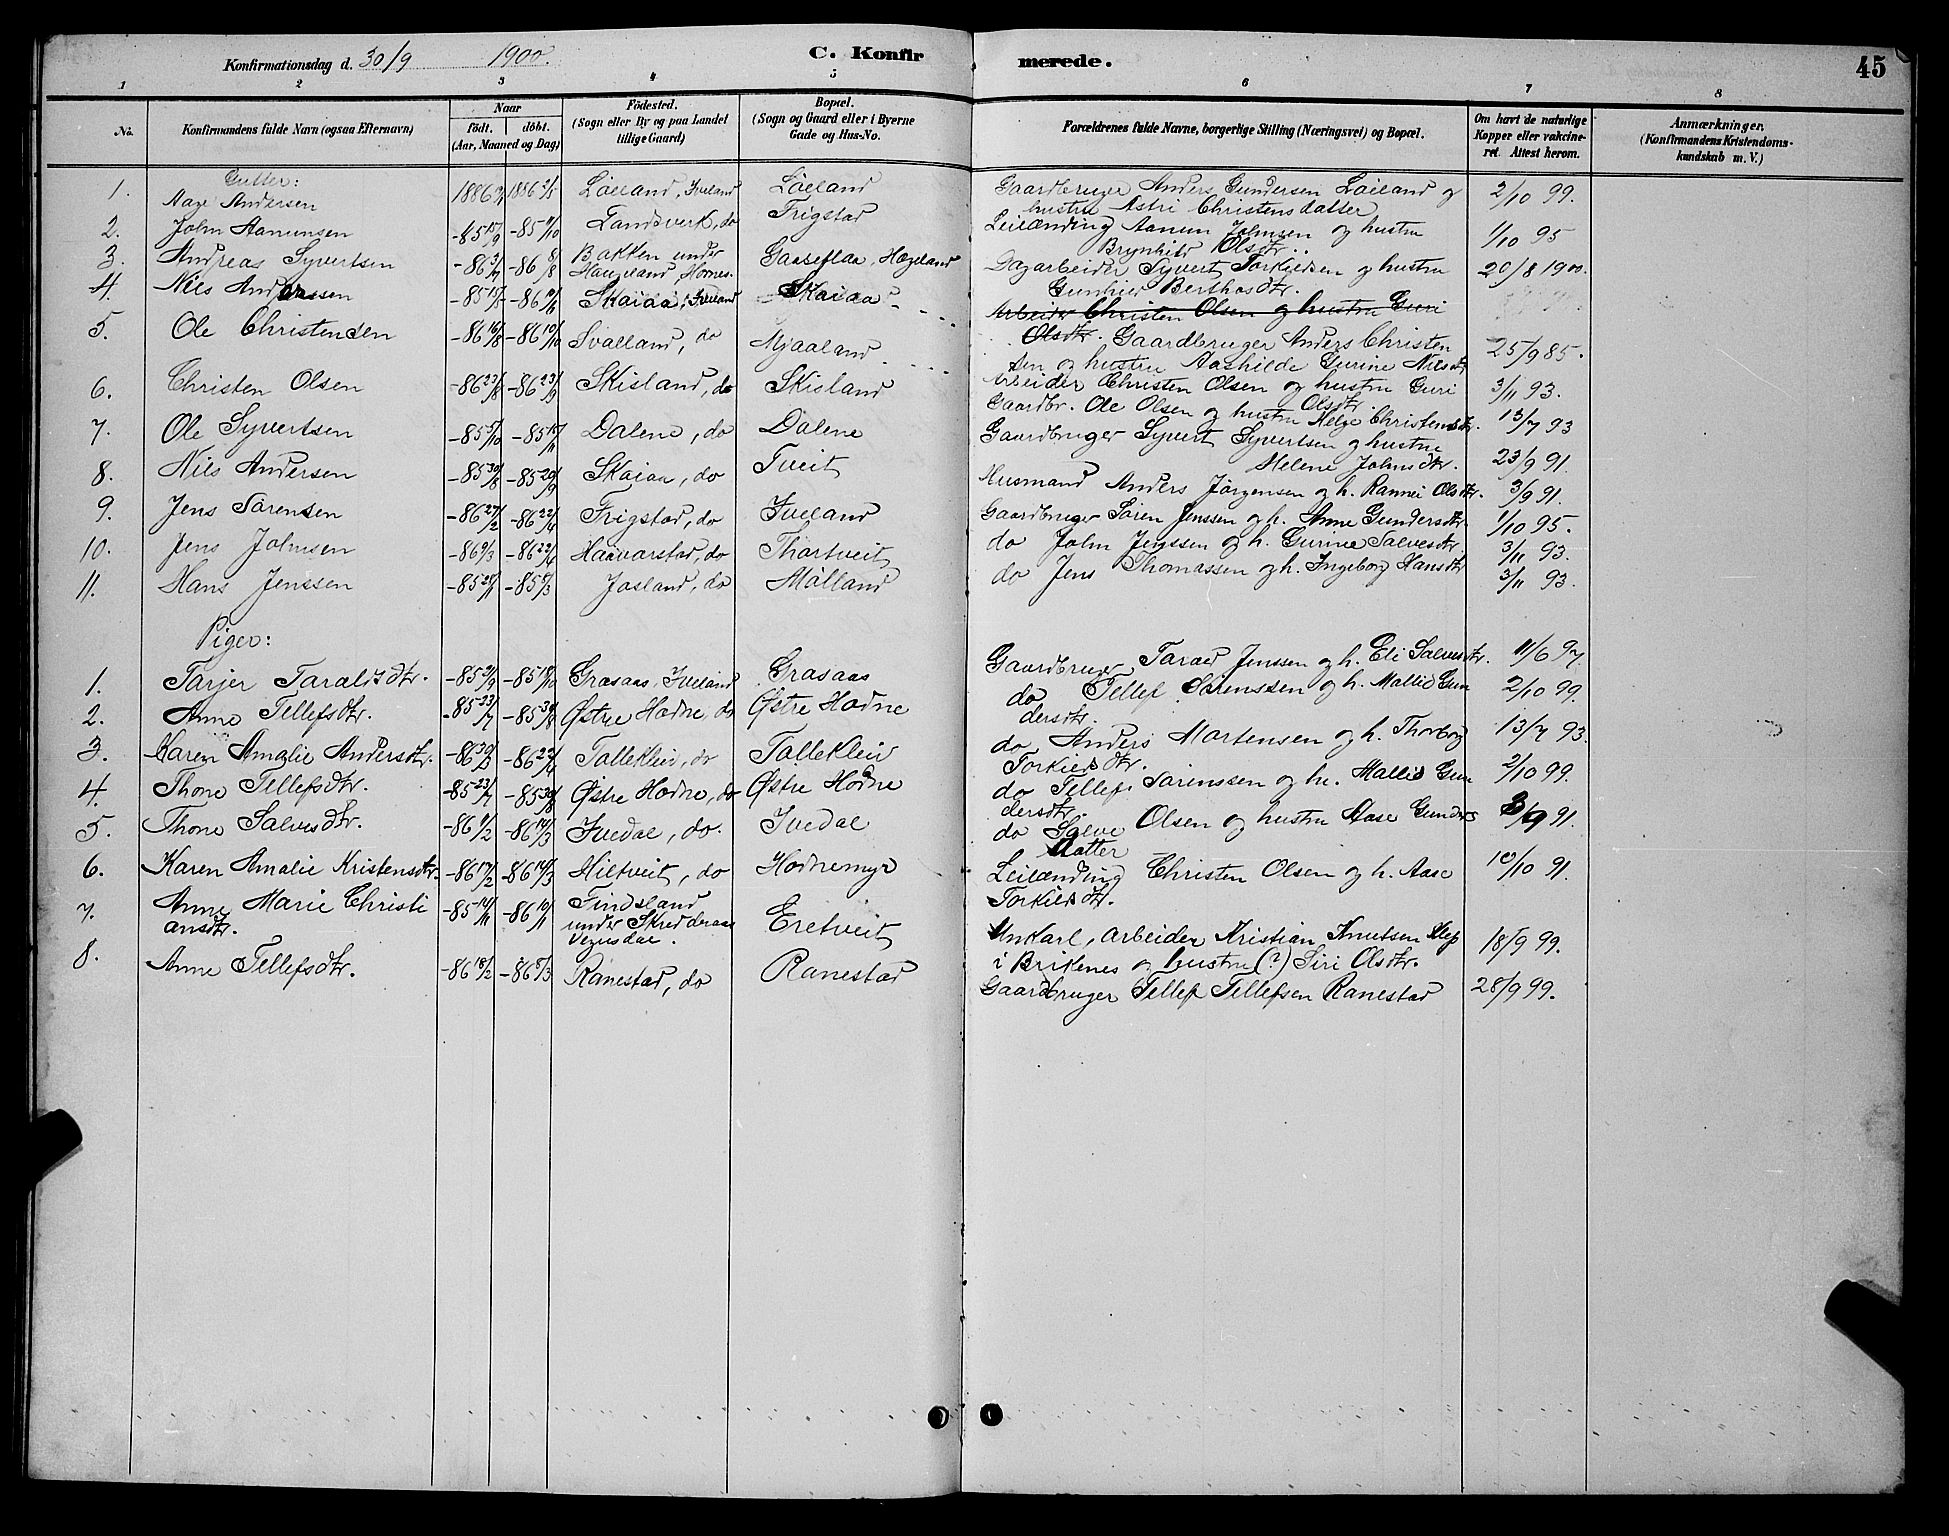 Konfirmationsdag d. 30/9 1900.
C. Konfirmerede.
45
1 2 3 4 5 6 7 8
No.
Konfirmandens fulde Navn (ogsaa Efternavn)
Naar
födt. döbt.
(Aar, Maaned og Dag)
Födested.
(Sogn eller By og paa Landet
tillige Gaard)
Bopæl.
(Sogn og Gaard eller i Byerne
Gade og Hus-No.
Forældrenes fulde Navne, borgerlige Stilling (Næringsvei) og Bopæl.
Om havt de naturlige
Kopper eller vakcine-
ret. Attest herom.
Anmærkninger.
(Konfirmandens Kristendoms-
kundskab m. V.)
Gutter:
1. Aage Andersen 1886 1886 Løland, Iveland Løeland Gaardbruger Anders Gundersen Løiland og hustru Astri Christensdatter 2/10 99.
2. John Aanunsen -85 15/9 -85 11/10 Landsverk, do Frigstad Leilænding Aanun Johnsen og hustru Brynhild Olsdtr. 1/10 95
3. Andreas Syvertsen -86 3/7 -86 8/8 Bakken under Haugeland, Hornes. Gaaseflaa, Hægeland Dagarbeider Syvert Torkildsen og hustru Gunhild Berthasdtr. 20/8 1900.
4. Nils Anderssen -85 -86 Skaiaa, Iveland Skaiaa Arbeider Christen Olsen og hustru Guri Olsdtr. Gaardbruger Anders Christensen og hustru Aashilde Gurine Nilsdtr 25/9 85.
5. Ole Christensen -86 16/8 -86 10/10 Ivalland, do Mjaaland Arbeider Christen Olsen og hustru Guri Olsdtr. 3/11 93.
6. Christen Olsen -86 23/8 -86 23/9 Skisland, do Skisland Gaardbr. Ole Olsen og hustru Helge Christensdtr. 13/7 93
7. Ole Syvertsen -85 5/10 -85 15/11 Dalene, do Dalene Gaardbruger Syvert Syvertsen og hustru Helene Johnsdtr. 23/9 91.
8. Nils Andersen -85 30/8 -85 20/9 Skaiaa, do Tveit Husmand Anders Jørgensen og h. Rannei Olsdtr. 3/9 91.
9. Jens Sørensen -86 27/2 -86 22/4 Frigstad, do Iveland Gaardbruger Søren Jenssen og h. Anne Gundersdtr. 1/10 95.
10. Jens Johnsen -86 9/3 -86 22/4 Haavarstad, do Thortveit do John Jenssen og h. Gurine Salvesdtr. 3/11 93.
11. Hans Jenssen -85 25/1 -85 5/3 Jøsland, do Mølland do Jens Thomassen og h. Ingeborg Hansdtr 3/11 93.
Piger:
1. Tarjer Taraldsdtr. -85 -85 18/10 Grasaas, Iveland Grasaas Gaardbruger Tarald Jenssen og h. Eli Salvesdtr. 11/6 97
2. Anne Tellefsdtr. -85 23/7 -85 30/8 Østre Hodne, do Østre Hodne do Tellef Sørenssen og h. Mallid Gundersdtr. 2/10 99.
3. Karen Amalie Andersdtr. -86 30/3 -86 22/4 Tallekleiv, do Tallekleiv do Anders Mortensen og h. Thorborg Torkildsdtr. 13/7 93.
4. Thone Tellefsdtr. -85 23/7 -85 30/8 Østre Hodne, do Østre Hodne do Tellef Sørenssen og h. Mallid Gundersdtr. 2/10 99.
5. Thone Salvesdtr. -86 9/2 -86 14/3 Ivedal, do. Ivedal do Salve Olsen og hustru Aase Gundersdatter 3/9 91.
6. Karen Amalie Kristensdtr. -86 17/2 -86 14/3 Hiltveit, do Hodnemyr Leilænding Christen Olsen og h. Aase Torkildsdtr. 10/10 91.
7. Anne Marie Christiansdtr. -85 14/11 -86 10/1 Findsland under Skredderaas Vegusdal. Eretveit Unkarl, Arbeider Kristian Knutsen Klep i Birkenes og hustru (?) Siri Olsdtr. 18/9 99.
8. Anne Tellefsdtr. -86 18/2 -86 8/3 Ranestad, do Ranestad Gaardbruger Tellef Tellefsen Ranestad 28/9 99.